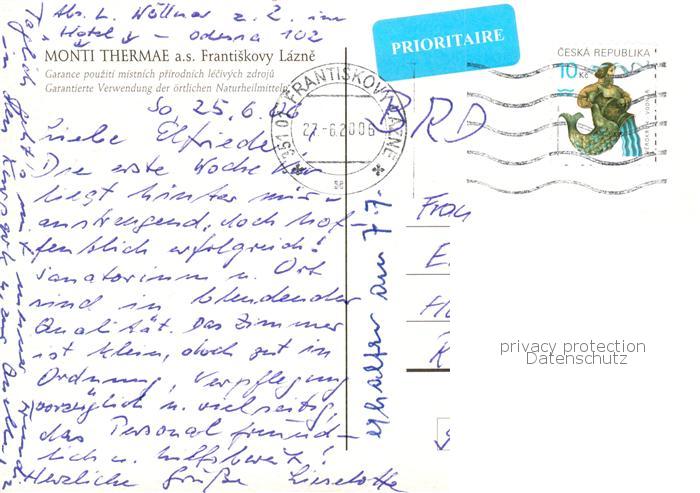 Abs. L. Wöllner z. Z. im
Hotel
MONTI THERMAE a.s. Františkovy Lázně
Garance použití místních přírodních léčivých zdrojů
Garantierte Verwendung der örtlichen Naturheilmittel
PRIORITAIRE
ČESKÁ REPUBLIKA
10 Kč
351 01 FRANTIŠKOVY LÁZNĚ
27.-6.2006
So, 25.6.06
BRD
Liebe Elfriede!
Die erste Woche
liegt hinter mir -
anstrengend, doch hof-
fentlich erfolgreich!
Sanatorium u. Ort
sind in blendender
Qualität. Das Zimmer
ist klein, doch gut in
Ordnung, Verpflegung
vorzüglich u. vielseitig,
das Personal freund-
lich u. hilfsbereit!
Herzliche Grüße Lieselotte
Täglich geht's mit meiner
in den Kurpark
erhalten am 7.7.
Frau
E
H
R
privacy protection
Datenschutz